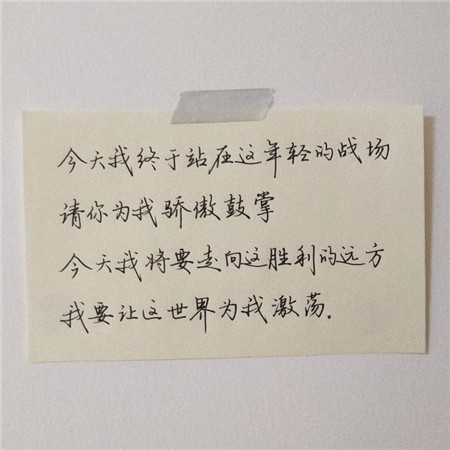 今天我终于站在这年轻的战场
请你为我骄傲鼓掌
今天我将要走向这胜利的远方
我要让这世界为我激荡.